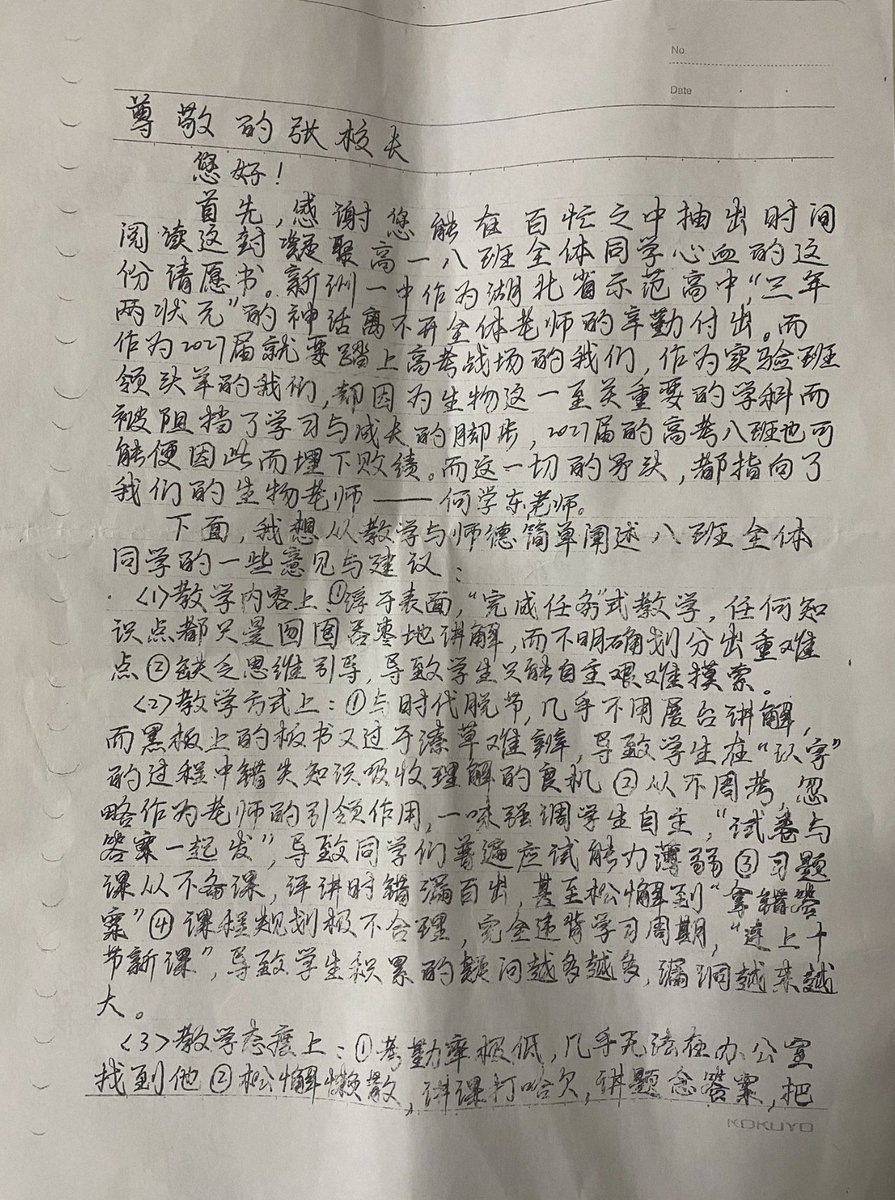 No.
Date
尊敬的张校长
您好！
首先，感谢您能在百忙之中抽出时间
阅读这封凝聚高一八班全体同学心血的这
份请愿书。新洲一中作为湖北省示范高中，“三年
两状元”的神话离不开全体老师的辛勤付出。而
作为2027届就要踏上高考战场的我们，作为实验班
领头羊的我们，却因为生物这一至关重要的学科而
被阻挡了学习与成长的脚步，2027届的高考八班也可
能便因此而埋下败绩。而这一切的矛头，都指向了
我们的生物老师——何学东老师。
下面，我想从教学与师德简单阐述八班全体
同学的一些意见与建议：
〈1〉教学内容上①浮于表面，“完成任务”式教学，任何知
识点都只是囫囵吞枣地讲解，而不明确划分出重难
点②缺乏思维引导，导致学生只能自主艰难摸索。
〈2〉教学方式上：①与时代脱节，几乎不用展台讲解，
而黑板上的板书又过于潦草难辨，导致学生在“认字”
的过程中错失知识吸收理解的良机②从不周考，忽
略作为老师的引领作用，一味强调学生自主，“试卷与
答案一起发”，导致同学们普遍应试能力薄弱③习题
课从不备课，评讲时错漏百出，甚至松懈到“拿错答
案”④课程规划极不合理，完全违背学习周期，“连上十
节新课”，导致学生积累的疑问越多越多，漏洞越来越
大。
〈3〉教学态度上：①考勤率极低，几乎无法在办公室
找到他②松懈懒散，讲课打哈欠，讲题念答案，把
KOKUYO